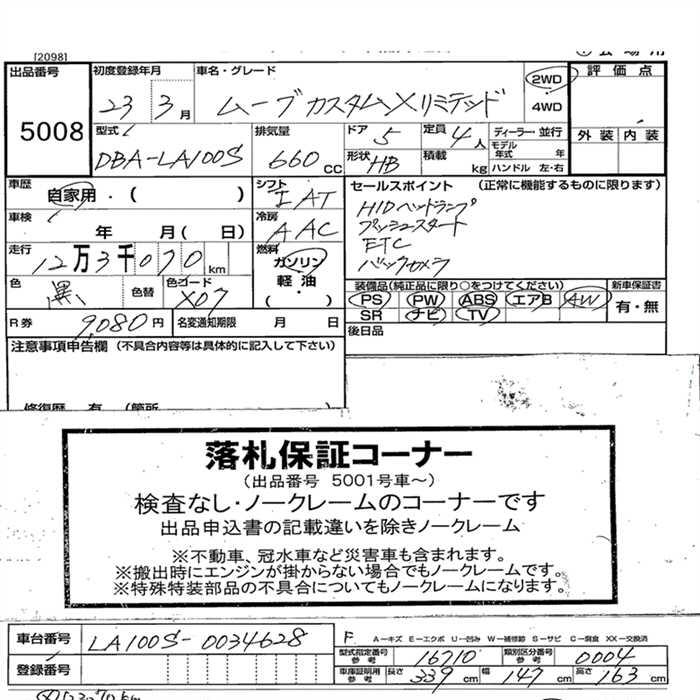 [2098]
出品番号 初度登録年月 車名・グレード 評価点
5008 23 3月 ムーブカスタムXリミテッド 2WD 4WD
外装 内装
型式 排気量 ドア 5 定員 4人 ディーラー・並行
DBA-LA100S 660CC 形状 HB 積載 kg モデル年式 年
ハンドル 左・右
車歴 自家用・( ) シフト IAT
セールスポイント (正常に機能するものに限ります)
車検 年 月( 日) 冷房 AAC
HIDヘッドランプ
プッシュスタート
ETC
バックカメラ
走行 12万3千070km 燃料 ガソリン 軽油・
色 黒 色替 色コード X07
装備品(純正品に限り○をつけてください) 新車保証書
PS PW ABS エアB AW 有・無
SR ナビ TV
R券 9,080円 名変通知期限 月 日
後日品
注意事項申告欄 (不具合内容等は具体的に記入して下さい)
修復歴 有 (箇所
落札保証コーナー
(出品番号 5001号車～)
検査なし・ノークレームのコーナーです
出品申込書の記載違いを除きノークレーム
※不動車、冠水車など災害車も含まれます。
※搬出時にエンジンが掛からない場合でもノークレームです。
※特殊特装部品の不具合についてもノークレームになります。
車台番号 LA100S-0034628 F A－キズ E－エクボ U－凹み W－補修跡 S－サビ C－腐食 XX－交換済
型式指定番号 参考 16710 類別区分番号 参考 0004
登録番号 車庫証明用 参考 長さ 339cm 幅 147cm 高さ 163cm